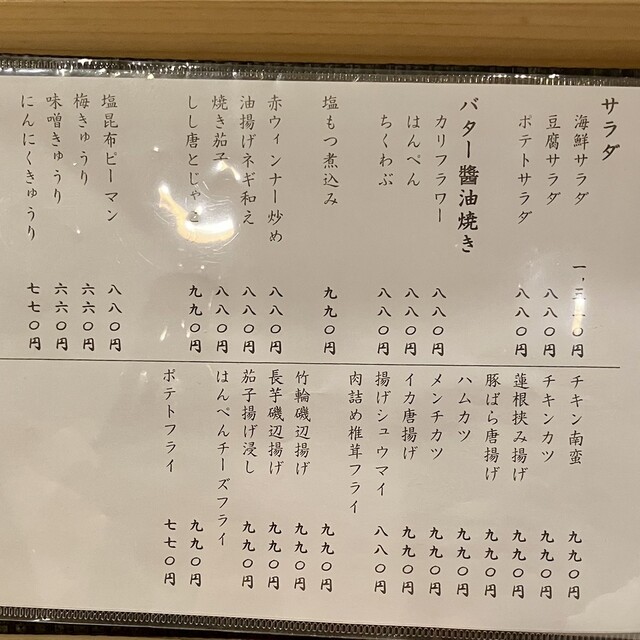 サラダ
海鮮サラダ 一,三 〇円
豆腐サラダ 八八〇円
ポテトサラダ 八八〇円
バター醬油焼き
カリフラワー 八八〇円
はんぺん 八八〇円
ちくわぶ 八八〇円
塩もつ煮込み 九九〇円
赤ウィンナー炒め 八八〇円
油揚げネギ和え 八八〇円
焼き茄子 八八〇円
しし唐とじゃこ 九九〇円
塩昆布ピーマン 八八〇円
梅きゅうり 六六〇円
味噌きゅうり 六六〇円
にんにくきゅうり 七七〇円
チキン南蛮 九九〇円
チキンカツ 九九〇円
蓮根挟み揚げ 九九〇円
豚ばら唐揚げ 九九〇円
ハムカツ 九九〇円
メンチカツ 九九〇円
イカ唐揚げ 九九〇円
揚げシュウマイ 八八〇円
肉詰め椎茸フライ 九九〇円
竹輪磯辺揚げ 九九〇円
長芋磯辺揚げ 九九〇円
茄子揚げ浸し 九九〇円
はんぺんチーズフライ 九九〇円
ポテトフライ 七七〇円